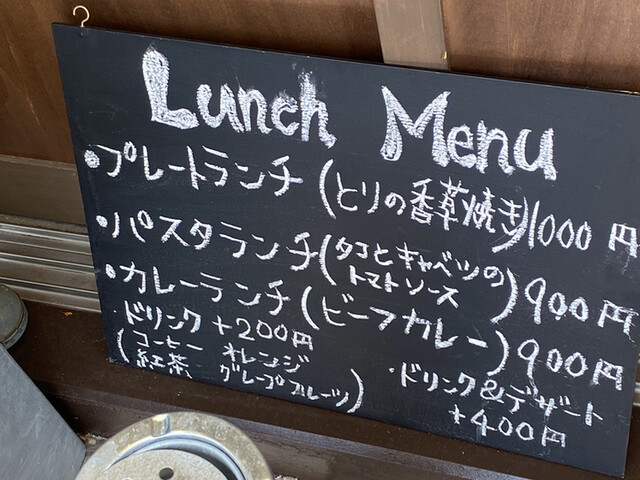 Lunch Menu
・プレートランチ (とりの香草焼き) 1000円
・パスタランチ (タコとキャベツのトマトソース) 900円
・カレーランチ (ビーフカレー) 900円
・ドリンク +200円
(コーヒー オレンジ
紅茶 グレープフルーツ)
・ドリンク&デザート
+400円